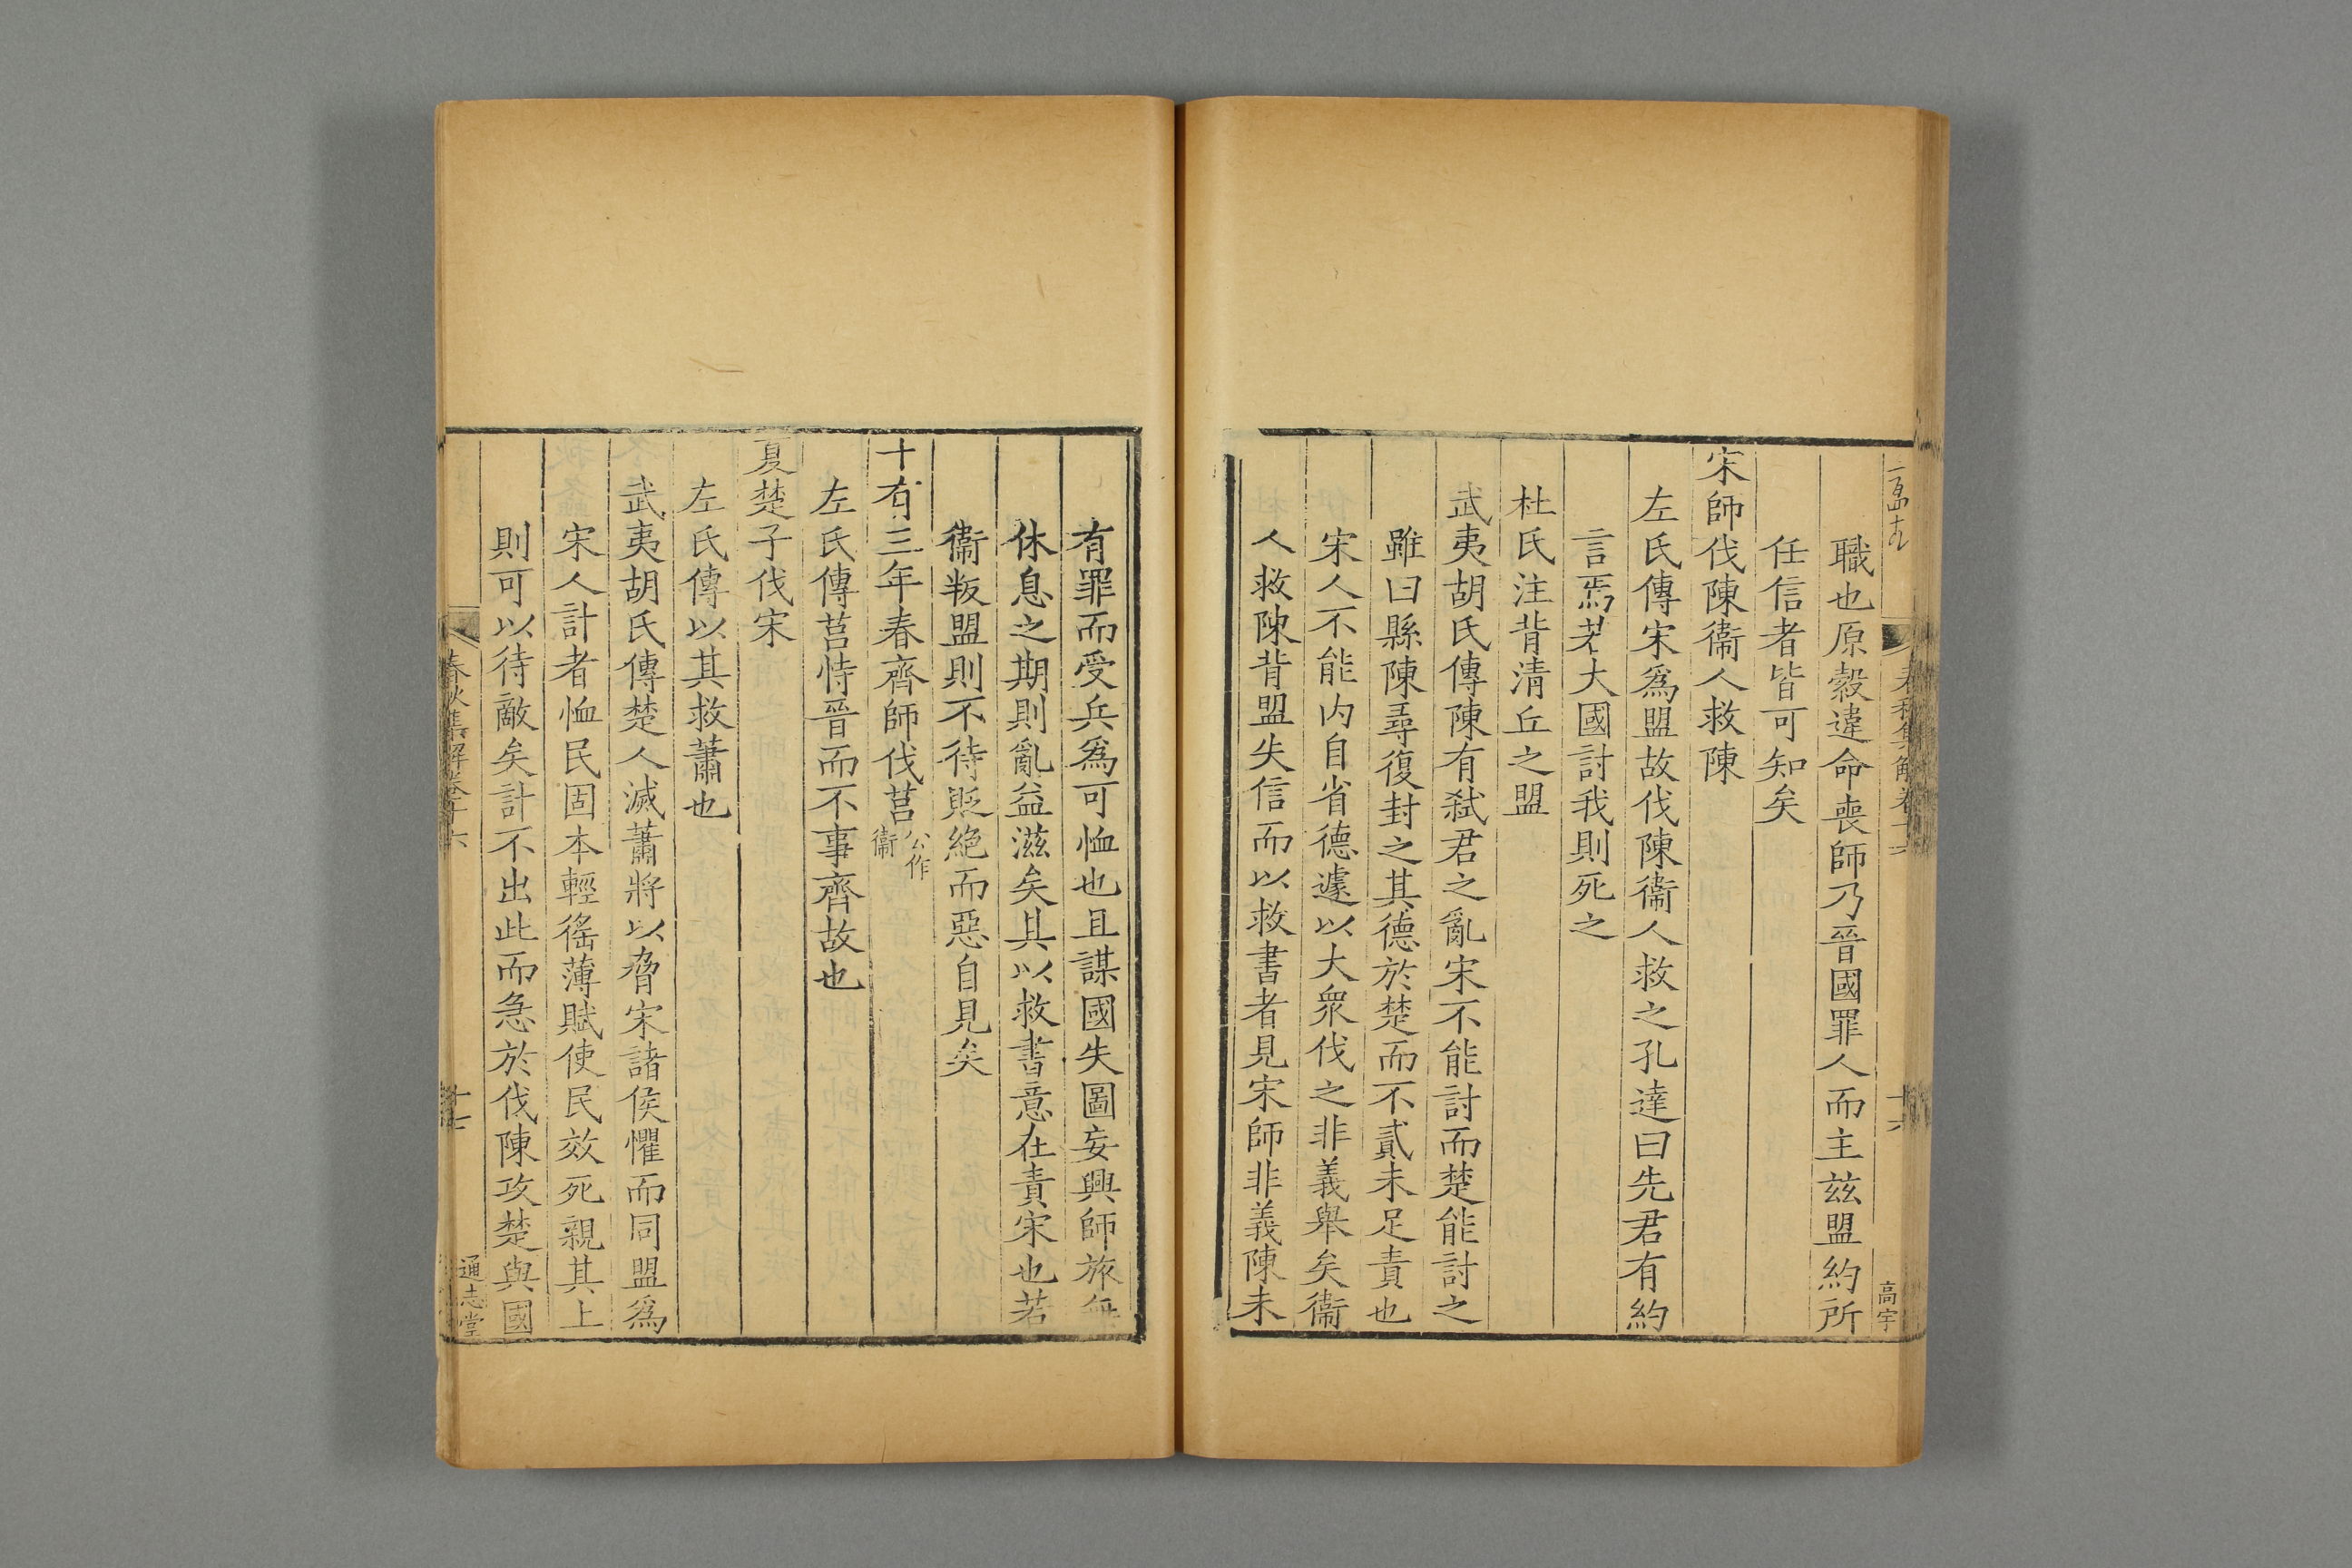 春秋集解卷十六
十六
高宇
職也原縠違命喪師乃晉國罪人而主兹盟約所
任信者皆可知矣
宋師伐陳衞人救陳
左氏傳宋爲盟故伐陳衞人救之孔達曰先君有約
言焉若大國討我則死之
杜氏注背清丘之盟
武夷胡氏傳陳有弑君之亂宋不能討而楚能討之
雖曰縣陳尋復封之其德於楚而不貳未足責也
宋人不能内自省德遽以大衆伐之非義舉矣衞
人救陳背盟失信而以救書者見宋師非義陳未
有罪而受兵爲可恤也且謀國失圖妄興師旅無
休息之期則亂益滋矣其以救書意在責宋也若
衞叛盟則不待貶絶而惡自見矣
十有三年春齊師伐莒公作衞
左氏傳莒恃晉而不事齊故也
夏楚子伐宋
左氏傳以其救蕭也
武夷胡氏傳楚人滅蕭將以脅宋諸侯懼而同盟爲
宋人計者恤民固本輕徭薄賦使民效死親其上
則可以待敵矣計不出此而急於伐陳攻楚與國
春秋集解卷十六
十七
通志堂